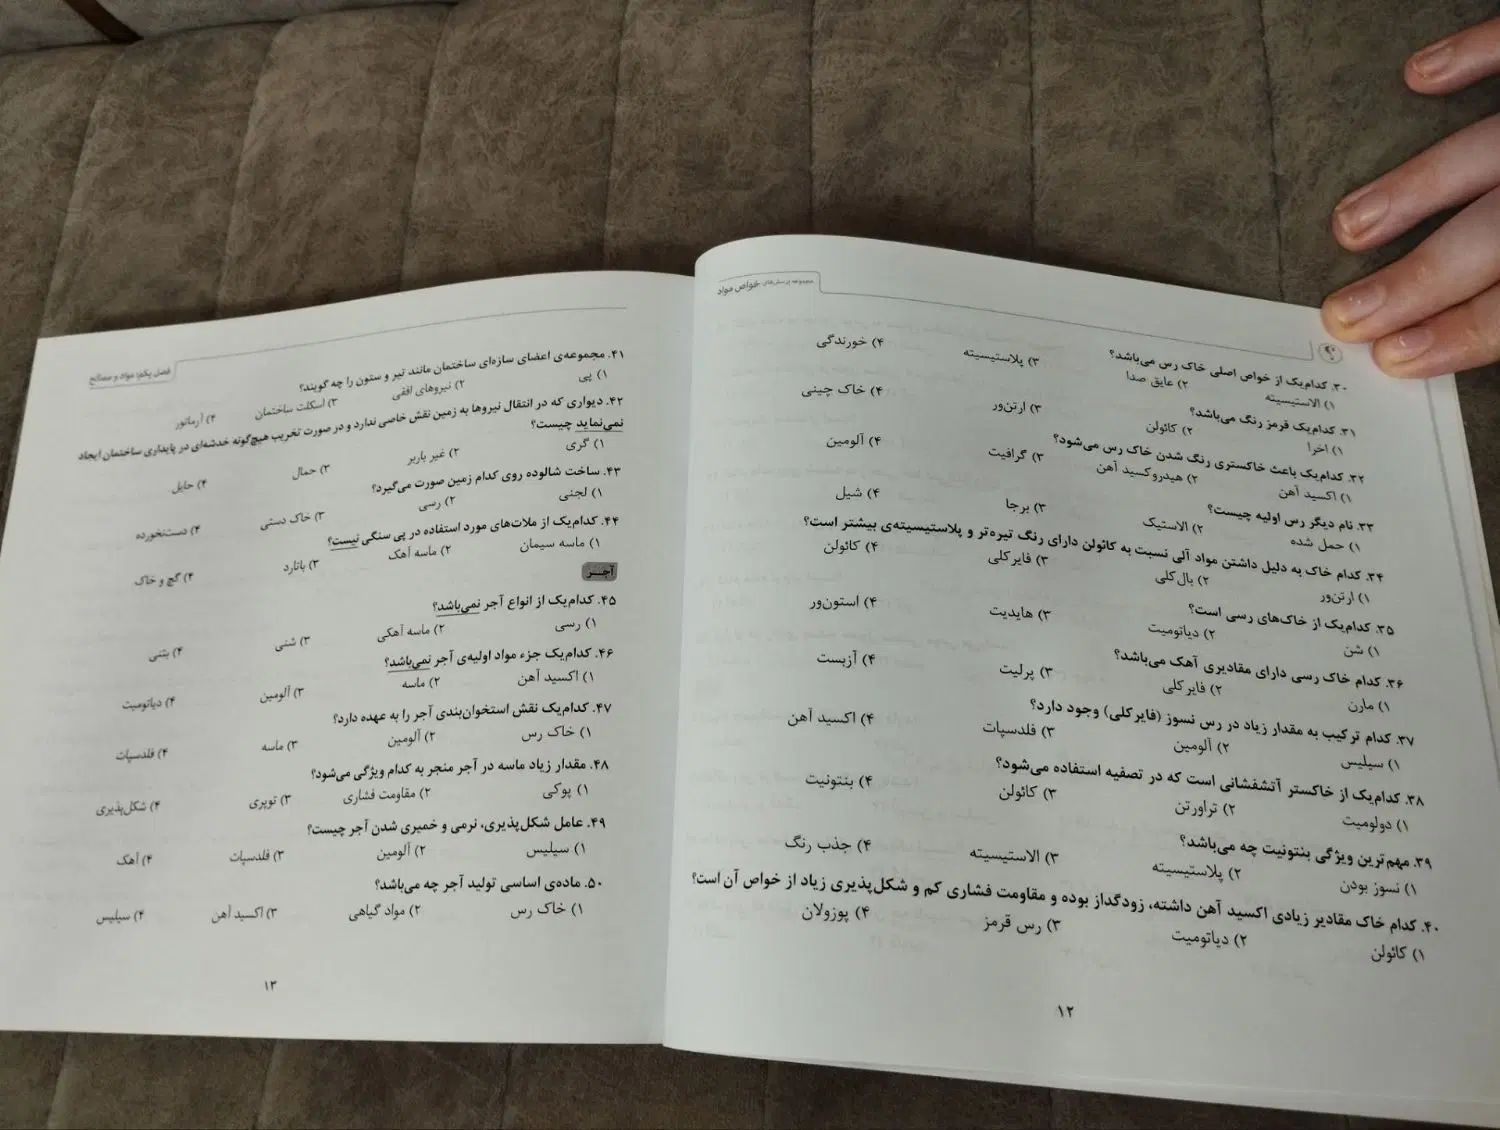 مجموعه پرسش‌های خواص مواد
۳۰. کدام‌یک از خواص اصلی خاک رس می‌باشد؟
۱) الاستیسیته ۲) عایق صدا ۳) پلاستیسیته ۴) خورندگی
۳۱. کدام‌یک قرمز رنگ می‌باشد؟
۱) اخرا ۲) کائولن ۳) ارتن‌ور ۴) خاک چینی
۳۲. کدام‌یک باعث خاکستری رنگ شدن خاک رس می‌شود؟
۱) اکسید آهن ۲) هیدروکسید آهن ۳) گرافیت ۴) آلومین
۳۳. نام دیگر رس اولیه چیست؟
۱) حمل شده ۲) الاستیک ۳) برجا ۴) شیل
۳۴. کدام خاک به دلیل داشتن مواد آلی نسبت به کائولن دارای رنگ تیره‌تر و پلاستیسیته‌ی بیشتر است؟
۱) ارتن‌ور ۲) بال‌کلی ۳) فایرکلی ۴) کائولن
۳۵. کدام‌یک از خاک‌های رسی است؟
۱) شن ۲) دیاتومیت ۳) هایدیت ۴) استون‌ور
۳۶. کدام خاک رسی دارای مقادیری آهک می‌باشد؟
۱) مارن ۲) فایرکلی ۳) پرلیت ۴) آزبست
۳۷. کدام ترکیب به مقدار زیاد در رس نسوز (فایرکلی) وجود دارد؟
۱) سیلیس ۲) آلومین ۳) فلدسپات ۴) اکسید آهن
۳۸. کدام‌یک از خاکستر آتشفشانی است که در تصفیه استفاده می‌شود؟
۱) دولومیت ۲) تراورتن ۳) کائولن ۴) بنتونیت
۳۹. مهم‌ترین ویژگی بنتونیت چه می‌باشد؟
۱) نسوز بودن ۲) پلاستیسیته ۳) الاستیسیته ۴) جذب رنگ
۴۰. کدام خاک مقادیر زیادی اکسید آهن داشته، زودگداز بوده و مقاومت فشاری کم و شکل‌پذیری زیاد از خواص آن است؟
۱) کائولن ۲) دیاتومیت ۳) رس قرمز ۴) پوزولان
۱۲
فصل یکم: مواد و مصالح
۴۱. مجموعه‌ی اعضای سازه‌ای ساختمان مانند تیر و ستون را چه گویند؟
۱) پی ۲) نیروهای افقی ۳) اسکلت ساختمان ۴) آرماتور
۴۲. دیواری که در انتقال نیروها به زمین نقش خاصی ندارد و در صورت تخریب هیچ‌گونه خدشه‌ای در پایداری ساختمان ایجاد
نمی‌نماید چیست؟
۱) گری ۲) غیر باربر ۳) حمال ۴) حایل
۴۳. ساخت شالوده روی کدام زمین صورت می‌گیرد؟
۱) لجنی ۲) رسی ۳) خاک دستی ۴) دست‌نخورده
۴۴. کدام‌یک از ملات‌های مورد استفاده در پی سنگی نیست؟
۱) ماسه سیمان ۲) ماسه آهک ۳) باتارد ۴) گچ و خاک
آجـر
۴۵. کدام‌یک از انواع آجر نمی‌باشد؟
۱) رسی ۲) ماسه آهکی ۳) شنی ۴) بتنی
۴۶. کدام‌یک جزء مواد اولیه‌ی آجر نمی‌باشد؟
۱) اکسید آهن ۲) ماسه ۳) آلومین ۴) دیاتومیت
۴۷. کدام‌یک نقش استخوان‌بندی آجر را به عهده دارد؟
۱) خاک رس ۲) آلومین ۳) ماسه ۴) فلدسپات
۴۸. مقدار زیاد ماسه در آجر منجر به کدام ویژگی می‌شود؟
۱) پوکی ۲) مقاومت فشاری ۳) توپری ۴) شکل‌پذیری
۴۹. عامل شکل‌پذیری، نرمی و خمیری شدن آجر چیست؟
۱) سیلیس ۲) آلومین ۳) فلدسپات ۴) آهک
۵۰. ماده‌ی اساسی تولید آجر چه می‌باشد؟
۱) خاک رس ۲) مواد گیاهی ۳) اکسید آهن ۴) سیلیس
۱۳